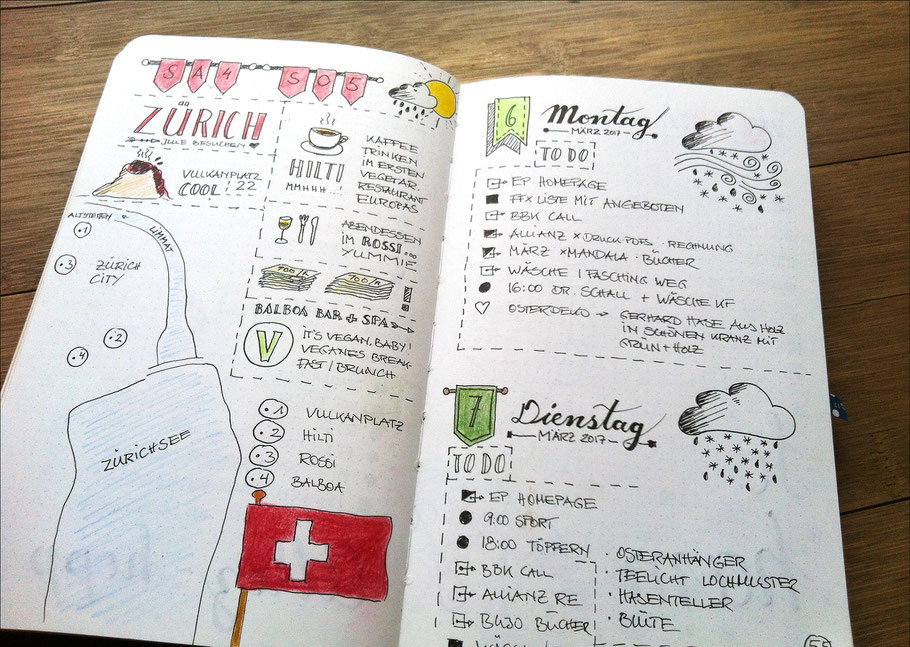 SA4 SO5
ZÜRICH
JULE BESUCHEN
VULKANPLATZ
COOL 22
HILTI
MMHHH...!
KAFFEE
TRINKEN
IM ERSTEN
VEGETAR.
RESTAURANT
EUROPAS
ABENDESSEN
IM ROSSI
YUMMIE...
700/K 700/K !
BALBOA BAR + SPA
V
IT'S VEGAN, BABY!
VEGANES BREAK-
FAST / BRUNCH
ALTSTETTEN
LIMMAT
•1
•3
ZÜRICH
CITY
•2
•4
ZÜRICHSEE
•1 VULKANPLATZ
•2 HILTI
•3 ROSSI
•4 BALBOA
6 Montag
MÄRZ 2017
TO DO
EP HOMEPAGE
FFX LISTE MIT ANGEBOTEN
BBK CALL
ALLIANZ × DRUCK PDFS · RECHNUNG
MÄRZ × MANDALA · BÜCHER
WÄSCHE | FASCHING WEG
16:00 DR. SCHALL + WÄSCHE KF
OSTERDEKO → GERHARD HASE AUS HOLZ
IN SCHÖNEN KRANZ MIT
GRÜN + HOLZ
7 Dienstag
MÄRZ 2017
TO DO
EP HOMEPAGE
9:00 SPORT
18:00 TÖPFERN
· OSTERANHÄNGER
· TEELICHT LOCHMUSTER
· HASENTELLER
· BLÜTE
BBK CALL
ALLIANZ RE
BUJO BÜCHER